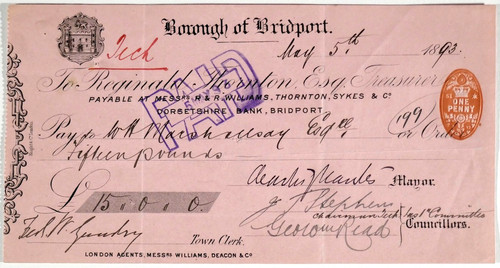 Borough of Bridport.
Tech
May 5th 1893
To Reginald Thornton, Esq. Treasurer
PAYABLE AT MESSRS R & R. WILLIAMS, THORNTON, SYKES & Co
DORSETSHIRE BANK, BRIDPORT.
PAID
ONE PENNY
199
Pay to W H Marshallsay Esqre or Order
Fifteen pounds
£ 15.0.0.
Mayor.
J Stephens
Chairman Tech Inst Committee
Councillors.
Fred W. Gundry
Town Clerk.
LONDON AGENTS, MESSRS WILLIAMS, DEACON & Co